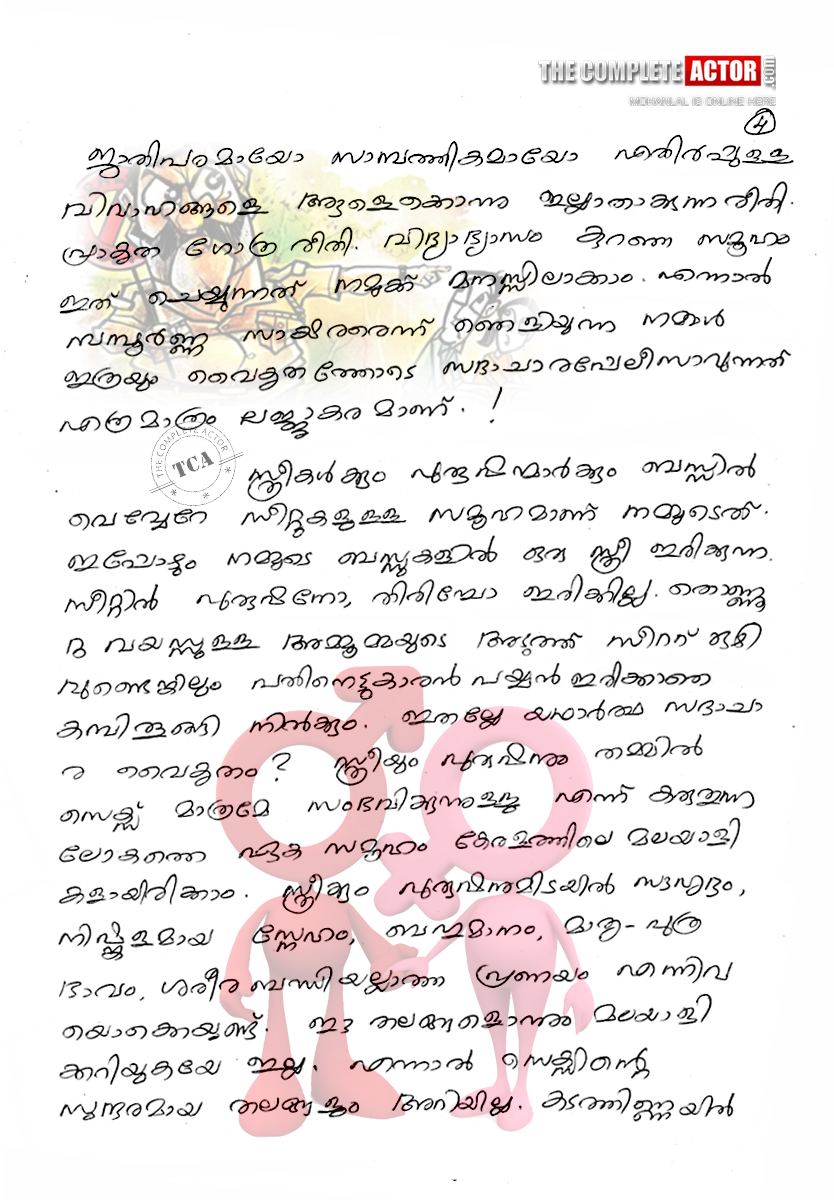 THE COMPLETE ACTOR .com
MOHANLAL IS ONLINE HERE
4
ജാതിപരമായോ സാമ്പത്തികമായോ എതിർപ്പുള്ള
വിവാഹങ്ങളെ ആളെക്കൊന്നു ഇല്ലാതാക്കുന്ന രീതി.
പ്രാകൃത ഗോത്ര രീതി. വിദ്യാഭ്യാസം കുറഞ്ഞ സമൂഹം
ഇത് ചെയ്യുന്നത് നമുക്ക് മനസ്സിലാക്കാം. എന്നാൽ
സമ്പൂർണ്ണ സാക്ഷരരെന്ന് ഞെളിയുന്ന നമ്മൾ
ഇത്രയും വൈകൃതത്തോടെ സദാചാരപ്പോലീസാവുന്നത്
എത്രമാത്രം ലജ്ജാകരമാണ്. !
THE COMPLETE ACTOR
TCA
സ്ത്രീകൾക്കും പുരുഷന്മാർക്കും ബസ്സിൽ
വെവ്വേറേ സീറ്റുകളുള്ള സമൂഹമാണ് നമ്മുടെത്.
ഇപ്പോഴും നമ്മുടെ ബസ്സുകളിൽ ഒരു സ്ത്രീ ഇരിക്കുന്ന
സീറ്റിൽ പുരുഷനോ, തിരിച്ചോ ഇരിക്കില്ല. തൊണ്ണൂ
റു വയസ്സുള്ള അമ്മൂമ്മയുടെ അടുത്ത് സീററ് ഒഴി
വുണ്ടെങ്കിലും പതിനെട്ടുകാരൻ പയ്യൻ ഇരിക്കാതെ
കമ്പിതൂങ്ങി നിൽക്കും. ഇതല്ലേ യഥാർത്ഥ സദാചാ
ര വൈകൃതം? സ്ത്രീയും പുരുഷനും തമ്മിൽ
സെക്സ് മാത്രമേ സംഭവിക്കുന്നുള്ളൂ എന്ന് കരുതുന്ന
ലോകത്തെ ഏക സമൂഹം കേരളത്തിലെ മലയാളി
കളായിരിക്കാം. സ്ത്രീക്കും പുരുഷനുമിടയിൽ സൗഹൃദം,
നിഷ്ക്കളമായ സ്നേഹം, ബഹുമാനം, മാതൃ-പുത്ര
ഭാവം, ശരീര ബന്ധിയല്ലാത്ത പ്രണയം എന്നിവ
യൊക്കെയുണ്ട്. ഈ തലങ്ങളൊന്നും മലയാളി
ക്കറിയുകയേ ഇല്ല. എന്നാൽ സെക്സിന്റെ
സുന്ദരമായ തലങ്ങളും അറിയില്ല. കടത്തിണ്ണയിൽ